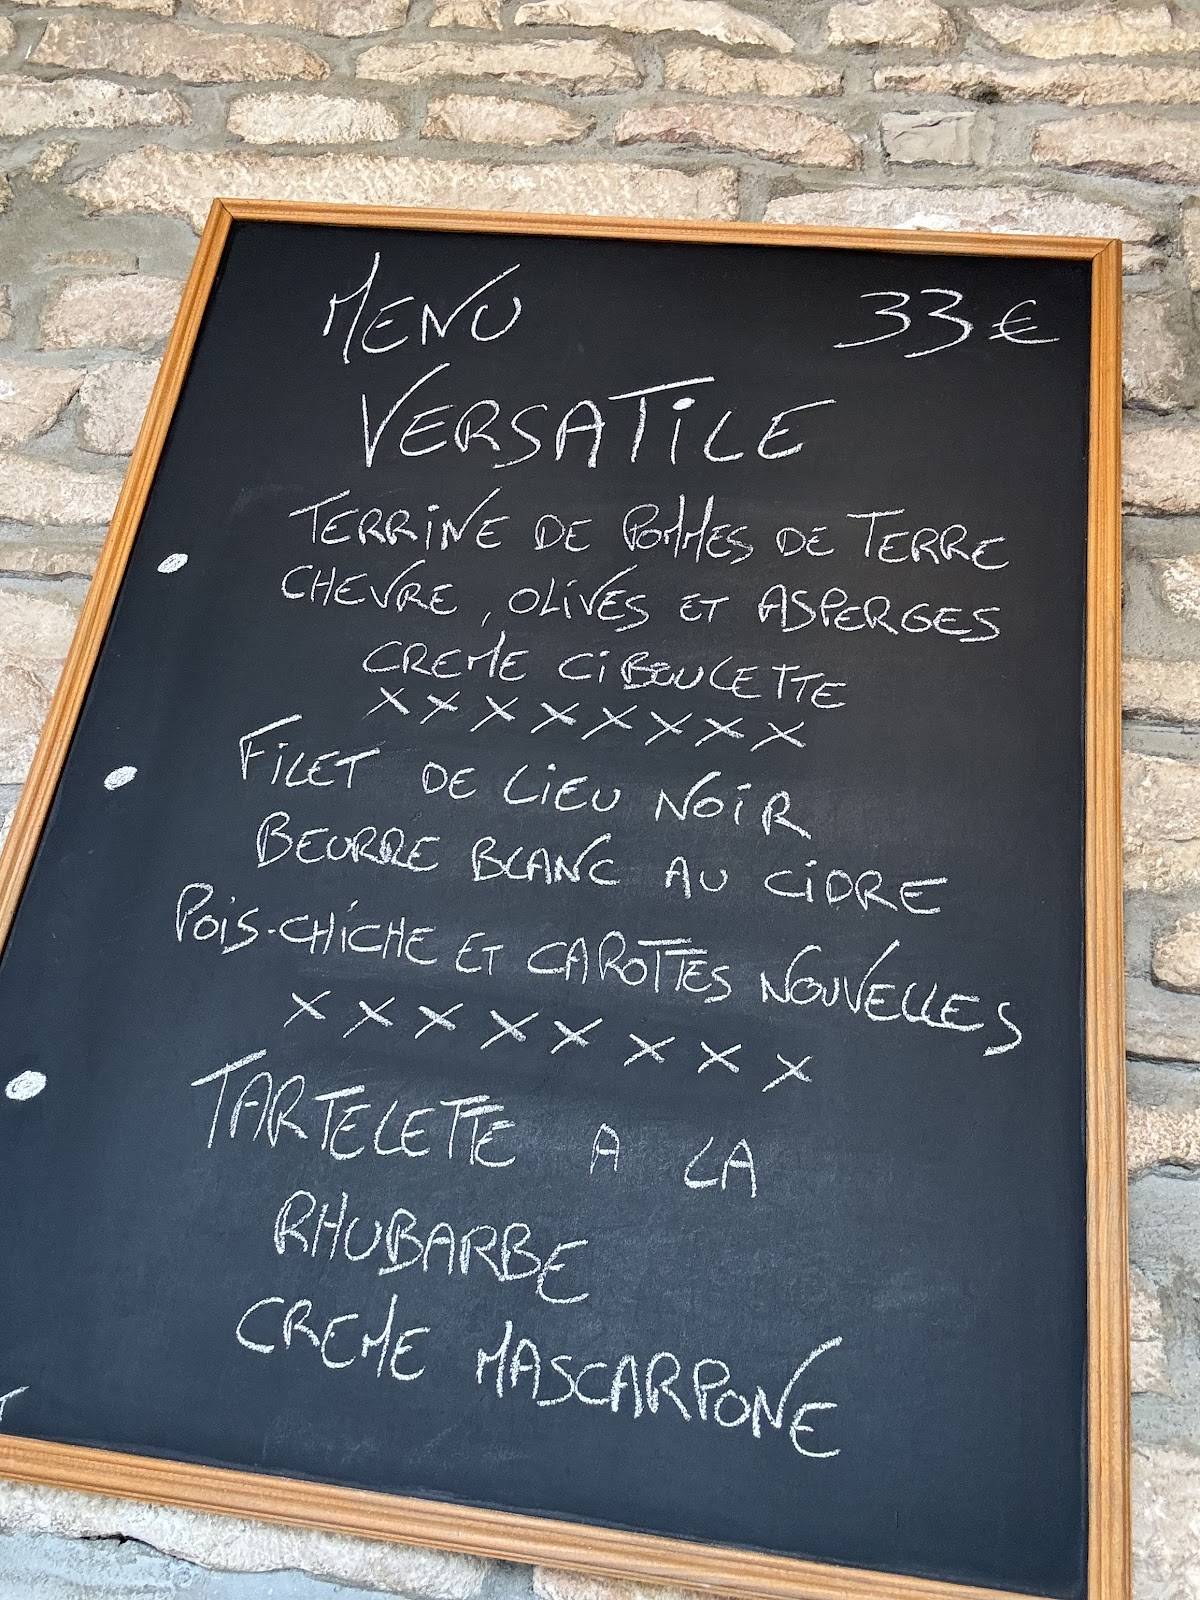 MENU 33 €
VERSATiLE
TERRiNE DE POMMES DE TERRE
CHEVRE, OLiVES ET ASPERGES
CREME CiBOULETTE
XXXXXXXX
FiLET DE LiEU NOiR
BEURRE BLANC AU CiDRE
POiS-CHiCHE ET CAROTTES NOUVELLES
XXXXXXXX
TARTELETTE A LA
RHUBARBE
CREME MASCARPONE